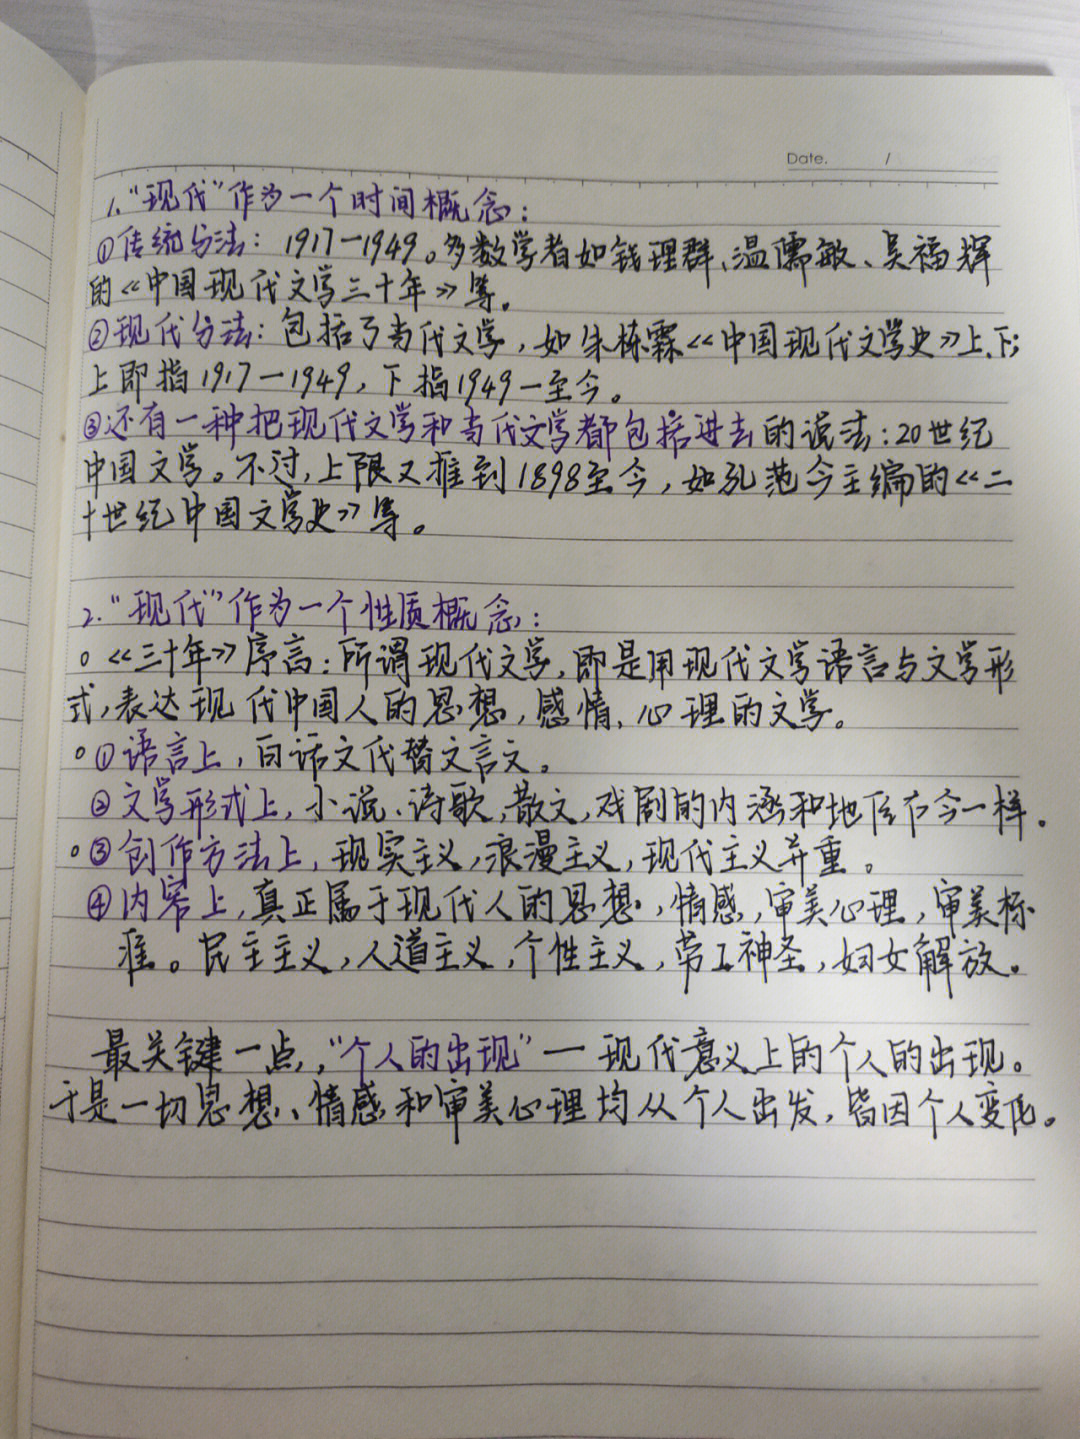 Date. /
1. "现代"作为一个时间概念:
①传统分法: 1917—1949。多数学者如钱理群、温儒敏、吴福辉
的《中国现代文学三十年》等。
②现代分法: 包括了当代文学, 如朱栋霖《中国现代文学史》上、下;
上即指1917—1949, 下指1949—至今。
③还有一种把现代文学和当代文学都包括进去的说法: 20世纪
中国文学。不过, 上限又推到1898至今, 如孔范今主编的《二
十世纪中国文学史》等。
2. "现代"作为一个性质概念:
《三十年》序言: 所谓现代文学, 即是用现代文学语言与文学形
式, 表达现代中国人的思想, 感情, 心理的文学。
①语言上, 白话文代替文言文。
②文学形式上, 小说、诗歌, 散文, 戏剧的内涵和地位古今一样。
③创作方法上, 现实主义, 浪漫主义, 现代主义并重。
④内容上, 真正属于现代人的思想, 情感, 审美心理, 审美标
准。民主主义, 人道主义, 个性主义, 劳工神圣, 妇女解放。
最关键一点, "个人的出现"—现代意义上的个人的出现。
于是一切思想、情感和审美心理均从个人出发, 皆因个人变化。